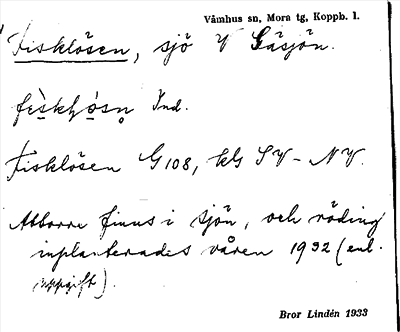 Våmhus sn, Mora tg, Koppb. l.
Fisklösen, sjö V Gåsjön.
Ind.
Fisklösen G 108, kG SV - NV.
Abborre finns i sjön, och röding
inplanterades våren 1932 (enl.
uppgift).
Bror Lindén 1933